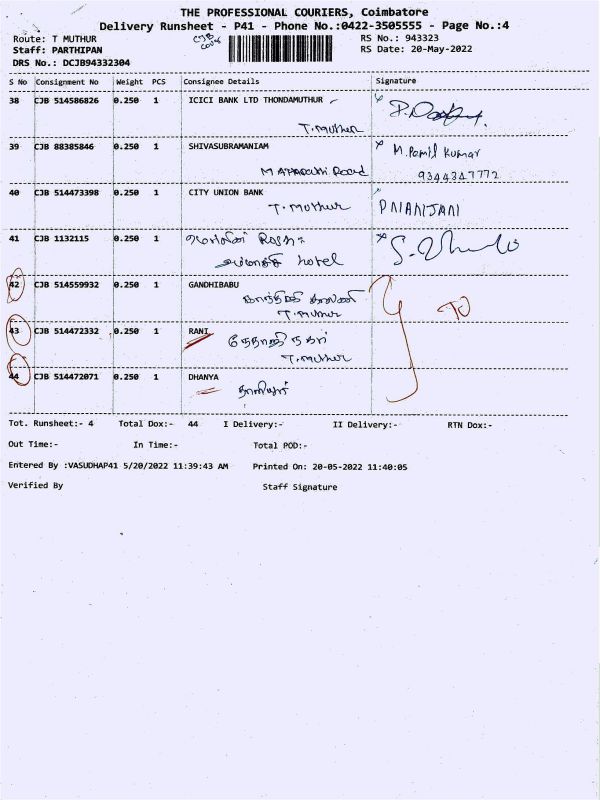 THE PROFESSIONAL COURIERS, Coimbatore
Delivery Runsheet - P41 - Phone No.:0422-3505555 - Page No.:4
Route: T MUTHUR CJB RS No.: 943323
Staff: PARTHIPAN RS Date: 20-May-2022
DRS No.: DCJB94332304
S No Consignment No Weight PCS Consignee Details Signature
38 CJB 514586826 0.250 1 ICICI BANK LTD THONDAMUTHUR
T.Muthur
39 CJB 88385846 0.250 1 SHIVASUBRAMANIAM M. Pamil Kumar
Road 9344347772
40 CJB 514473398 0.250 1 CITY UNION BANK
T.Muthur
41 CJB 1132115 0.250 1
hotel
42 CJB 514559932 0.250 1 GANDHIBABU
T.Muthur
43 CJB 514472332 0.250 1 RANI
நேதாஜி நகர்
T.Muthur
44 CJB 514472071 0.250 1 DHANYA
Tot. Runsheet:- 4 Total Dox:- 44 I Delivery:- II Delivery:- RTN Dox:-
Out Time:- In Time:- Total POD:-
Entered By :VASUDHAP41 5/20/2022 11:39:43 AM Printed On: 20-05-2022 11:40:05
Verified By Staff Signature